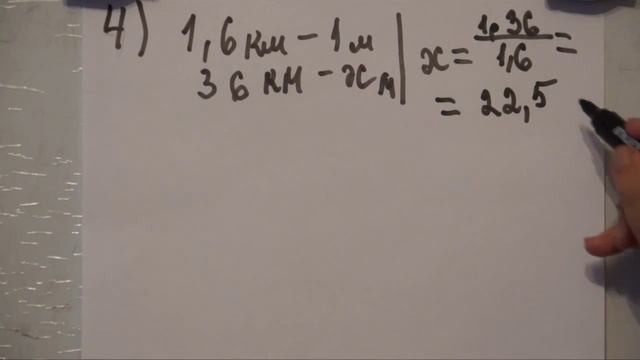 4) 1,6 км – 1 м
36 км – х м
х = 1·36 / 1,6 =
= 22,5